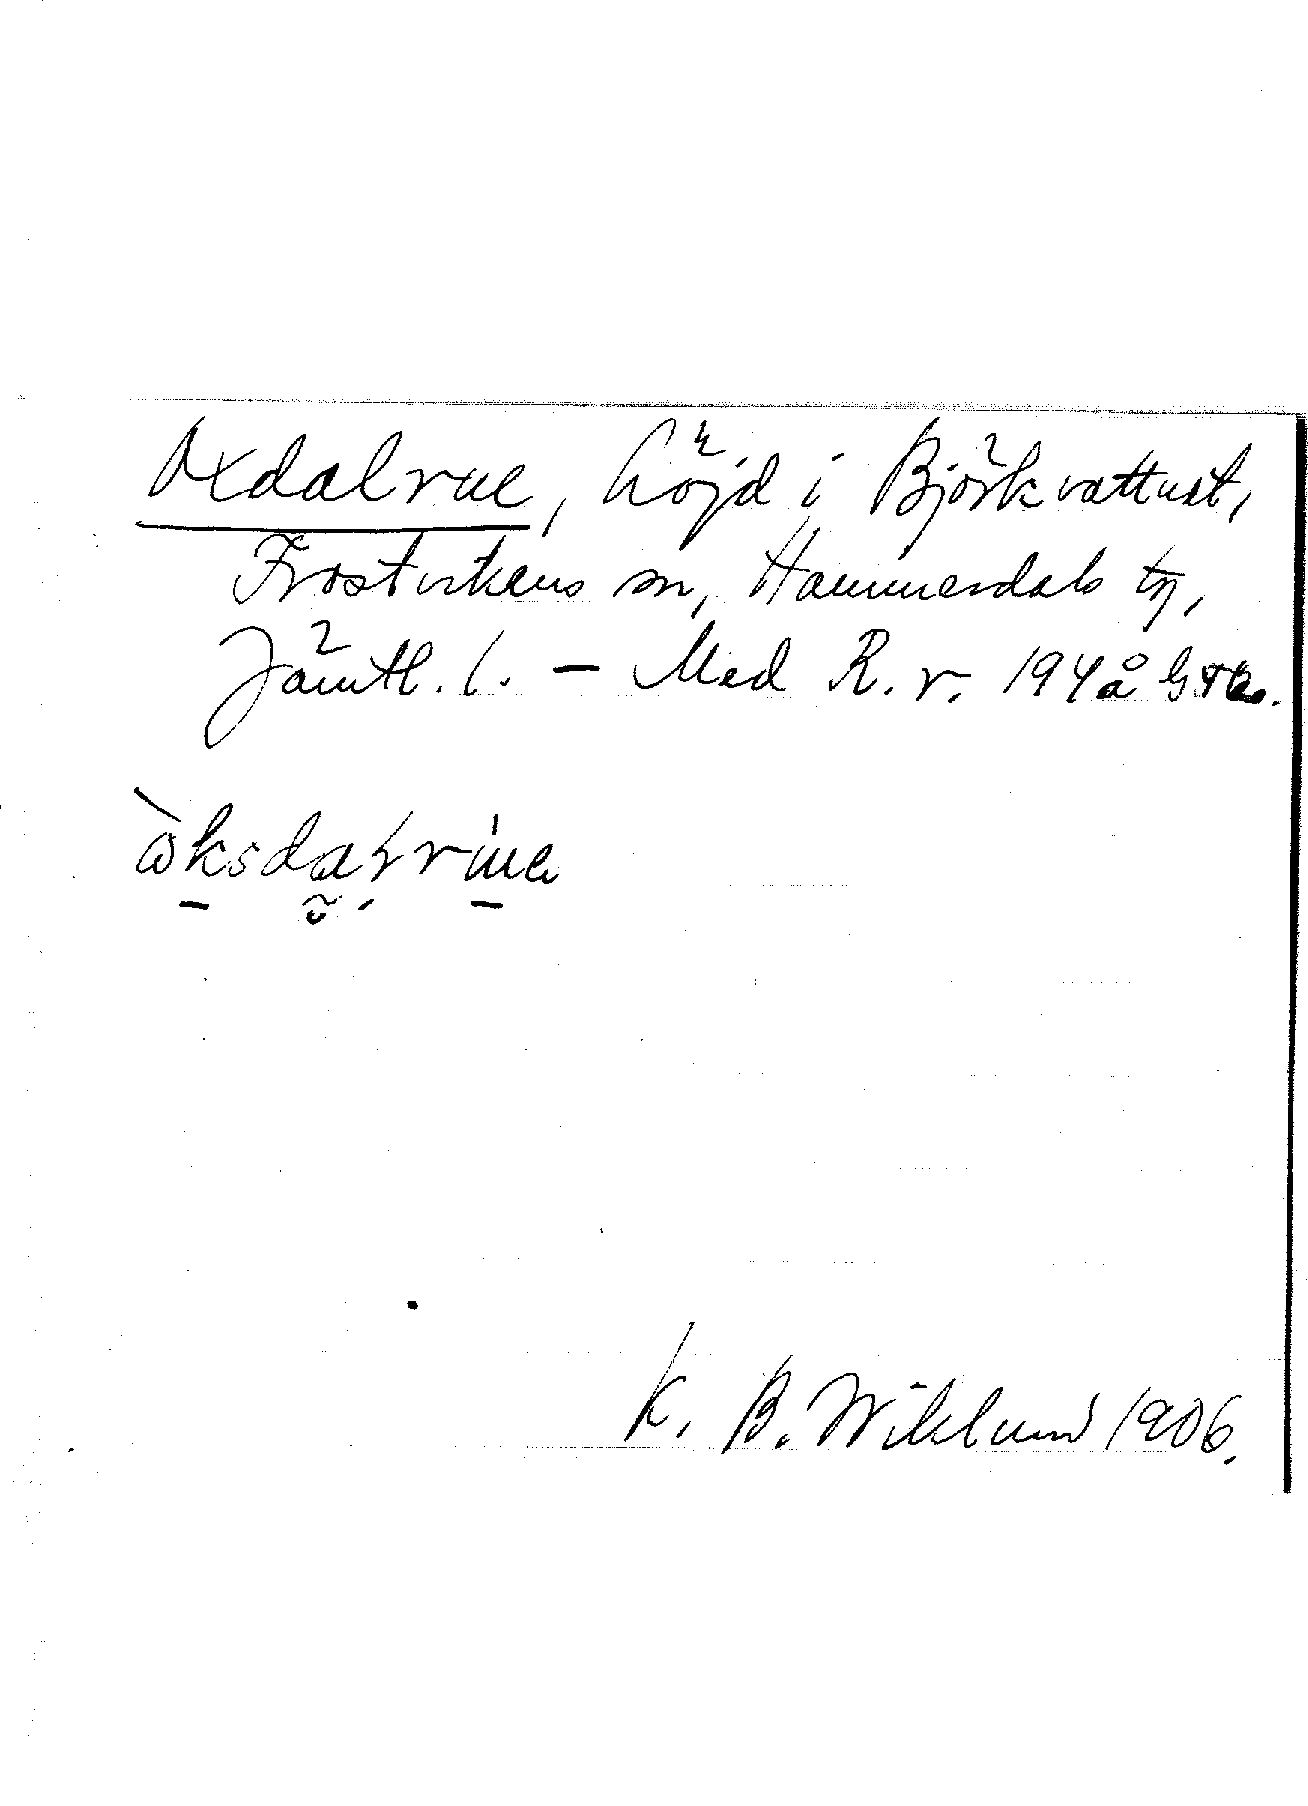 Oxdalrue, höjd i Björkvattnet,
Frostvikens sn, Hammerdals tg,
Jämtl. l. – Med R. v. 194å GSK.
K. B. Wiklund 1906.